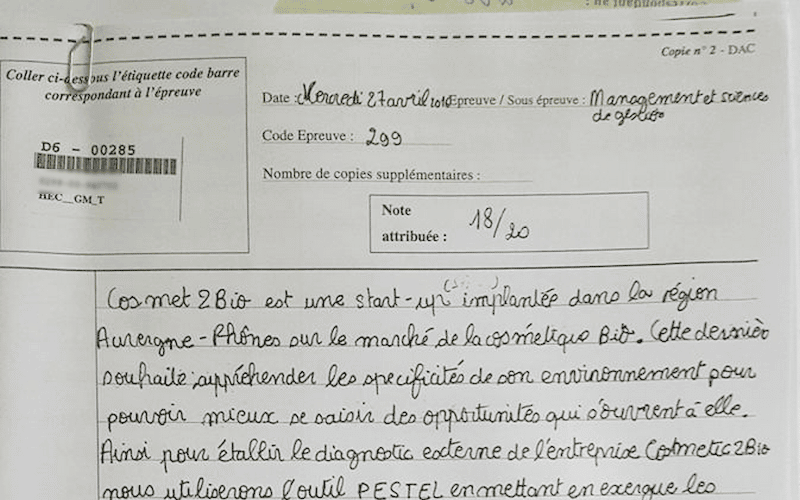 Copie n° 2 - DAC
Coller ci-dessous l'étiquette code barre
correspondant à l'épreuve
Date : Mercredi 27 avril Epreuve / Sous épreuve : Management et sciences
de gestion
Code Epreuve : 299
D6 - 00285
Nombre de copies supplémentaires :
HEC__GM_T
Note
attribuée : 18/20
Cosmet2Bio est une start-up implantée dans la région
Auvergne-Rhônes sur le marché de la cosmétique Bio. Cette dernière
souhaite appréhender les specificités de son environnement pour
pouvoir mieux se saisir des opportunités qui s'ouvrent à elle.
Ainsi pour établir le diagnostic externe de l'entreprise Cosmetic2Bio
nous utiliserons l'outil PESTEL en mettant en exergue les